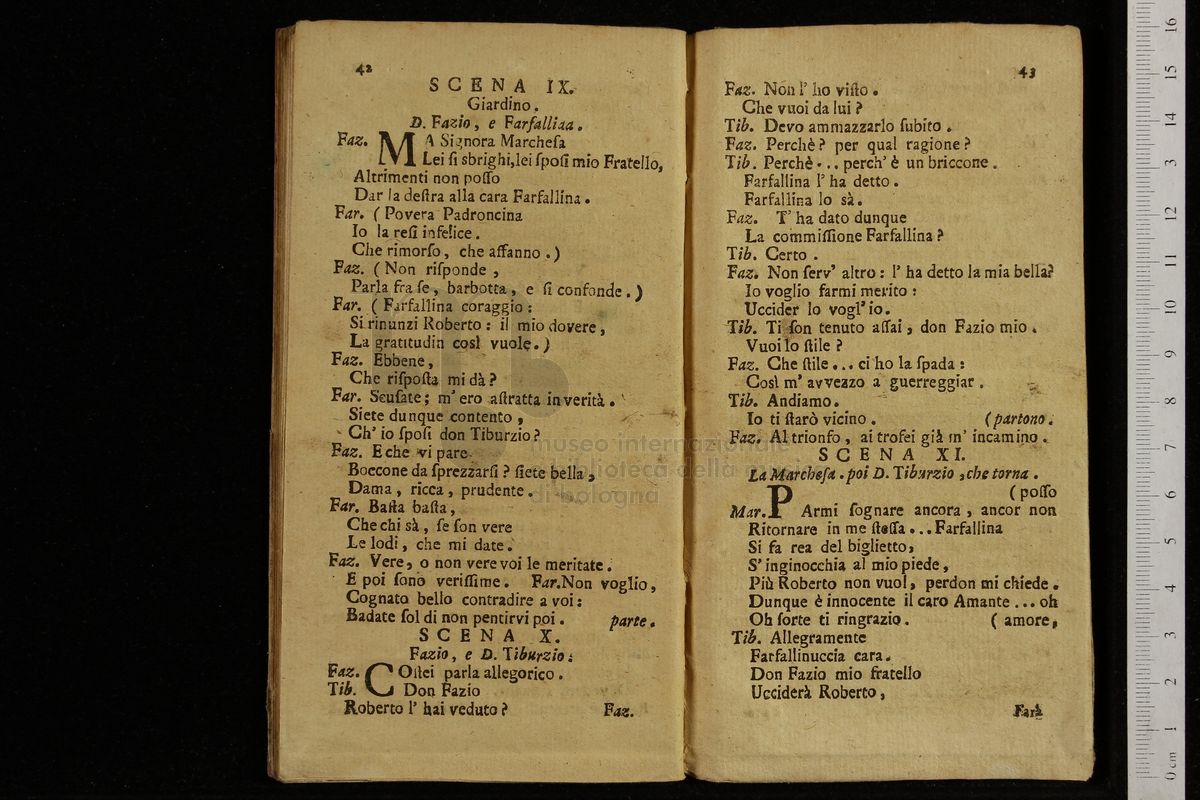 42
SCENA IX.
Giardino.
D. Fazio, e Farfallina.
Faz. MA Signora Marchesa
Lei si sbrighi, lei sposi mio Fratello,
Altrimenti non posso
Dar la destra alla cara Farfallina.
Far. (Povera Padroncina
Io la resi infelice.
Che rimorso, che affanno.)
Faz. (Non risponde,
Parla fra se, barbotta, e si confonde.)
Far. (Farfallina coraggio:
Si rinunzi Roberto: il mio dovere,
La gratitudin così vuole.)
Faz. Ebbene,
Che risposta mi dà?
Far. Scusate; m' ero astratta in verità.
Siete dunque contento,
Ch' io sposi don Tiburzio?
Faz. E che vi pare
Boccone da sprezzarsi? siete bella,
Dama, ricca, prudente.
Far. Basta basta,
Che chi sà, se son vere
Le lodi, che mi date.
Faz. Vere, o non vere voi le meritate.
E poi sono verissime. Far. Non voglio,
Cognato bello contradire a voi:
Badate sol di non pentirvi poi. parte.
SCENA X.
Fazio, e D. Tiburzio.
Faz. COstei parla allegorico.
Tib. Don Fazio
Roberto l' hai veduto? Faz.
43
Faz. Non l' ho visto.
Che vuoi da lui?
Tib. Devo ammazzarlo subito.
Faz. Perchè? per qual ragione?
Tib. Perchè... perch' è un briccone.
Farfallina l' ha detto.
Farfallina lo sà.
Faz. T' ha dato dunque
La commissione Farfallina?
Tib. Certo.
Faz. Non serv' altro: l' ha detto la mia bella?
Io voglio farmi merito:
Uccider lo vogl' io.
Tib. Ti son tenuto assai, don Fazio mio.
Vuoi lo stile?
Faz. Che stile... ci ho la spada:
Così m' avvezzo a guerreggiar.
Tib. Andiamo.
Io ti starò vicino. (partono.
Faz. Al trionfo, ai trofei già m' incamino.
SCENA XI.
La Marchesa. poi D. Tiburzio, che torna.
(posso
Mar. PArmi sognare ancora, ancor non
Ritornare in me stessa... Farfallina
Si fa rea del biglietto,
S' inginocchia al mio piede,
Più Roberto non vuol, perdon mi chiede.
Dunque è innocente il caro Amante... oh
Oh sorte ti ringrazio. (amore,
Tib. Allegramente
Farfallinuccia cara.
Don Fazio mio fratello
Ucciderà Roberto,
Farà
museo internazionale
e biblioteca della musica
di bologna